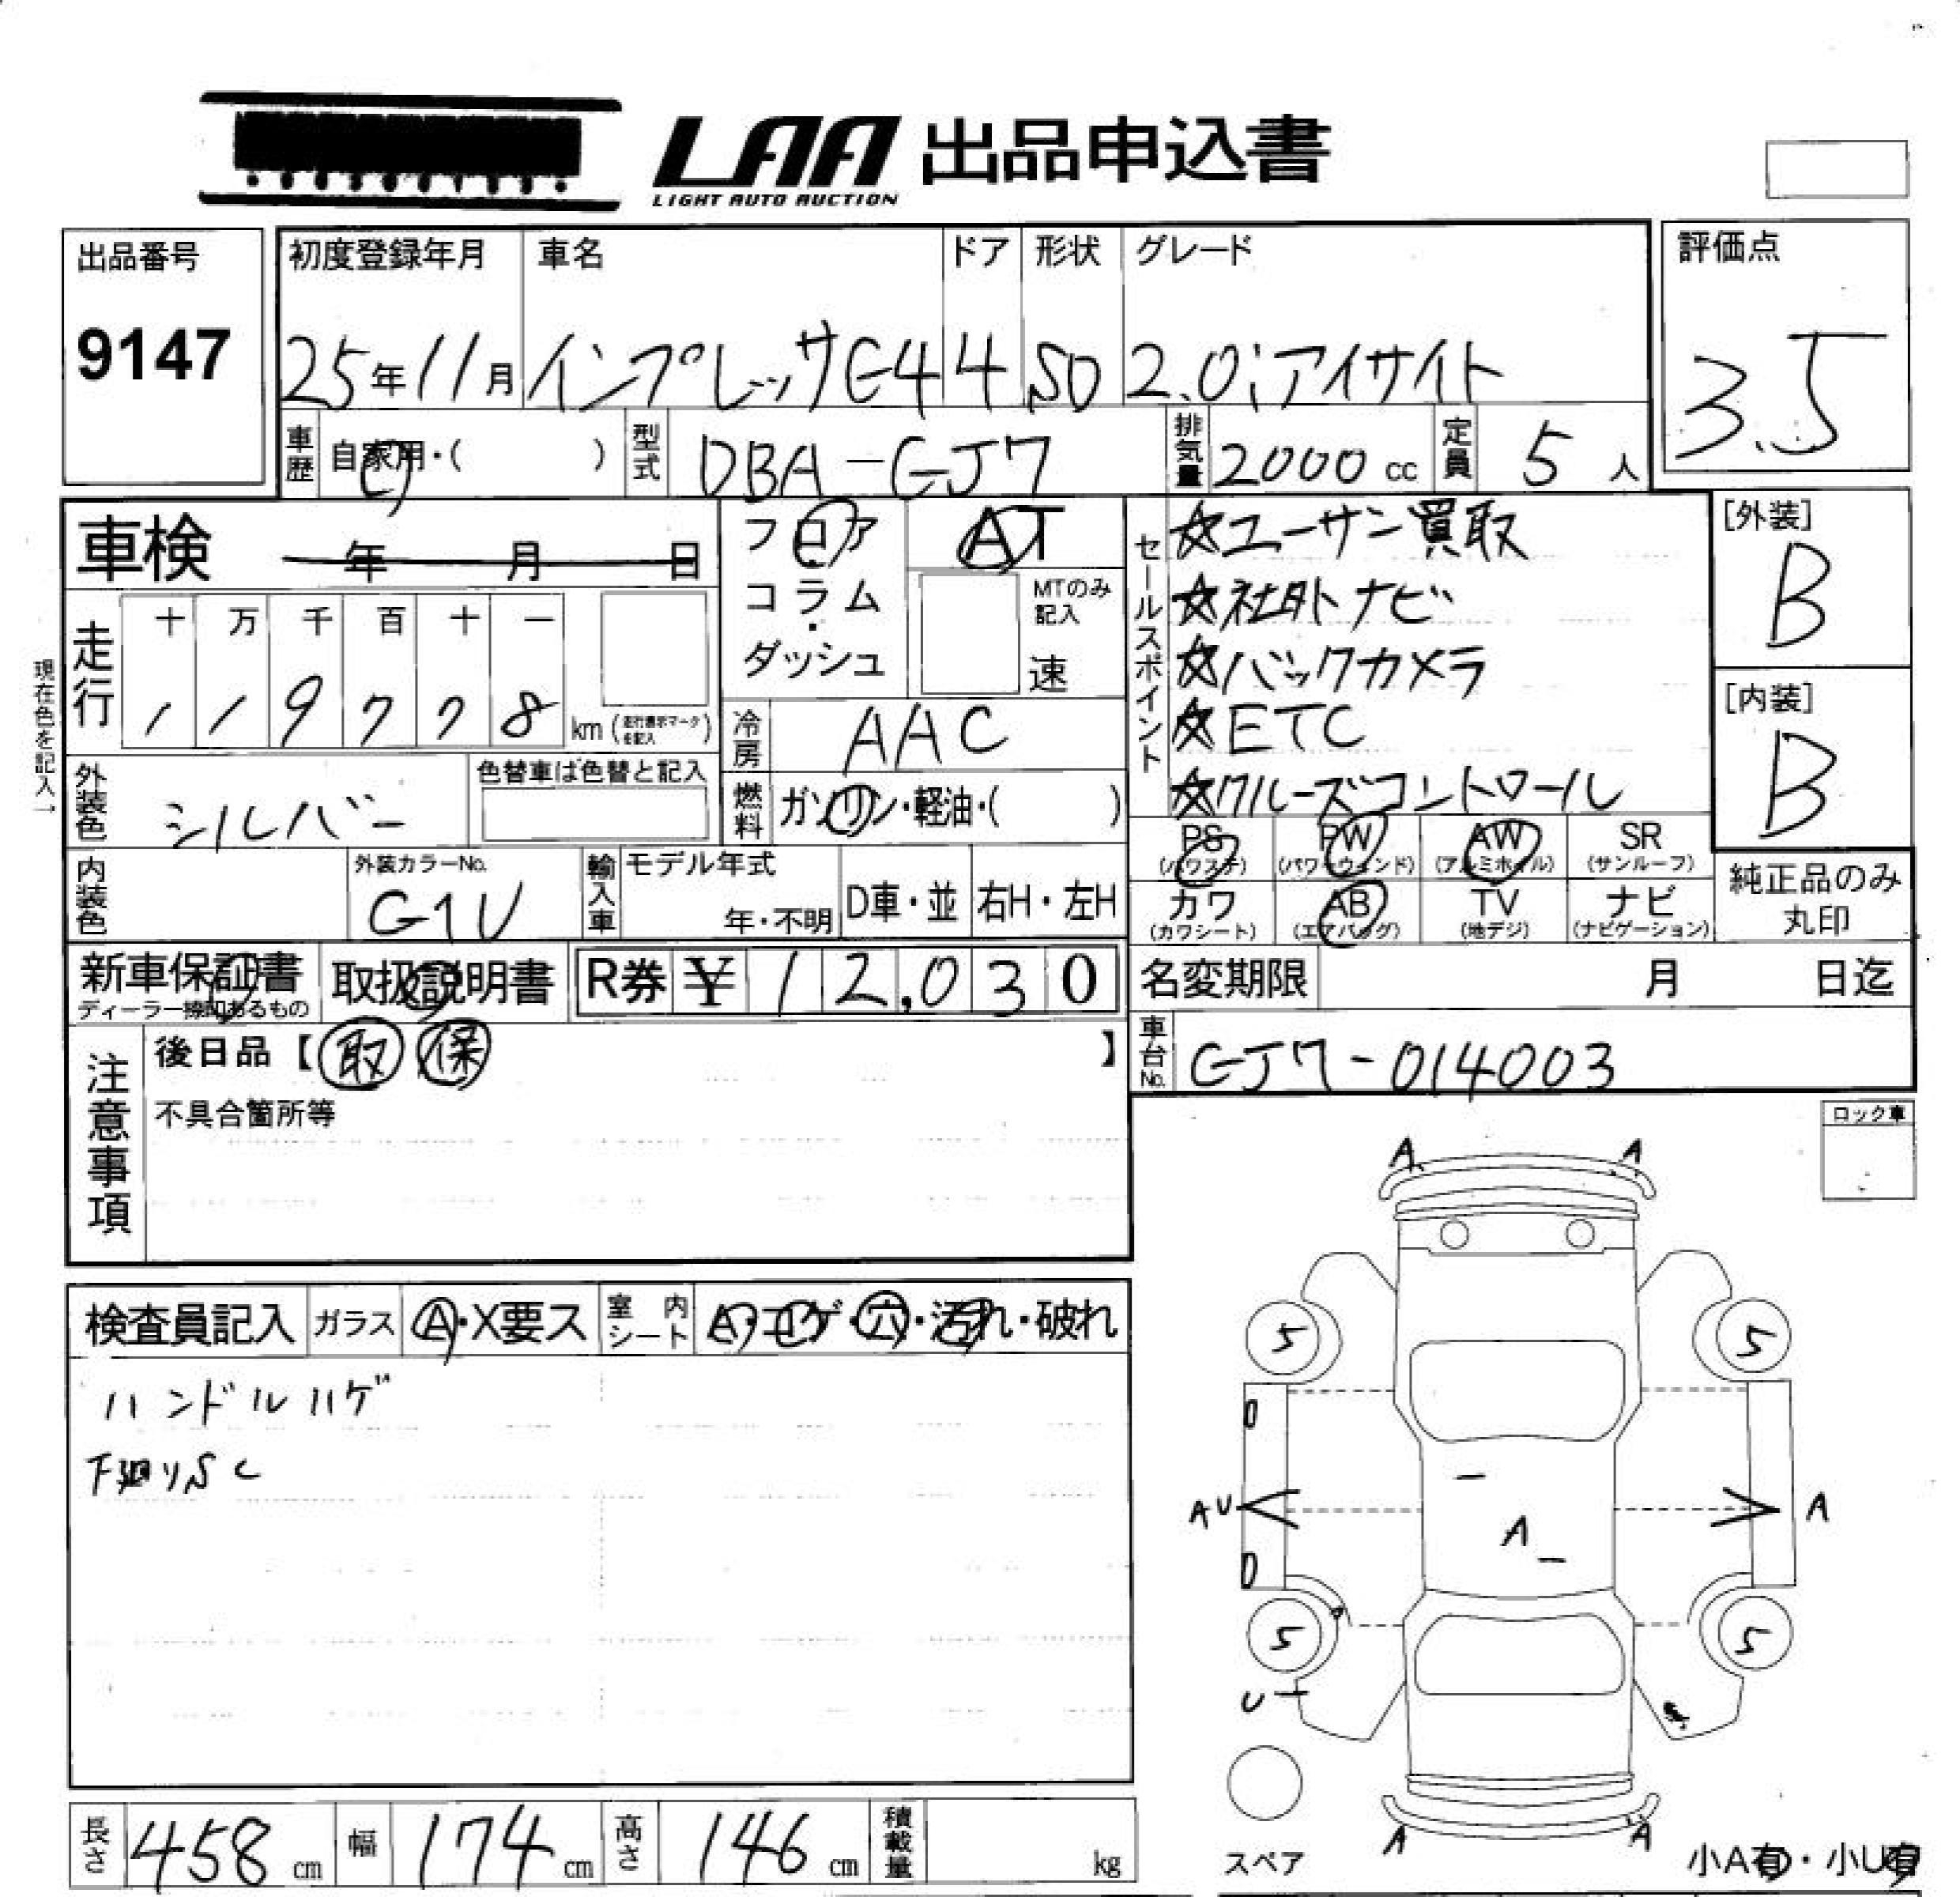 LAA 出品申込書
LIGHT AUTO AUCTION
出品番号
9147
初度登録年月 車名 ドア 形状 グレード
25年11月 インプレッサG4 4 SD 2.0iアイサイト
評価点
3.5
車歴 自家用・( ) 型式 DBA-GJ7 排気量 2000 cc 定員 5 人
車検 年 月 日
フロア
コラム
・
ダッシュ
AT
MTのみ
記入
速
セールスポイント
☆ユーザン買取
☆社外ナビ
☆バックカメラ
☆ETC
☆クルーズコントロール
[外装]
B
[内装]
B
現在色を記入→
走行 十 万 千 百 十 一
1 1 9 7 7 8 km (走行表示マークを記入)
冷房 AAC
外装色 シルバー 色替車は色替と記入
燃料 ガソリン・軽油・( )
PS PW AW SR
(パワステ) (パワーウィンド) (アルミホイル) (サンルーフ)
カワ AB TV ナビ
(カワシート) (エアバッグ) (地デジ) (ナビゲーション)
純正品のみ
丸印
内装色 外装カラーNo. G1U 輸入車 モデル年式 年・不明 D車・並 右H・左H
新車保証書 取扱説明書 R券 ¥ 12,030
ディーラー捺印あるもの
名変期限 月 日迄
車台No. GJ7-014003
注意事項
後日品【取 保 】
不具合箇所等
ロック車
検査員記入 ガラス A・X要ス 室内シート A・コゲ・穴・汚れ・破れ
ハンドルハゲ
下廻りSC
A A
5 5
AU A
A
5 5
U
A A
スペア
小A有・小U有
長さ 458 cm 幅 174 cm 高さ 146 cm 積載量 kg